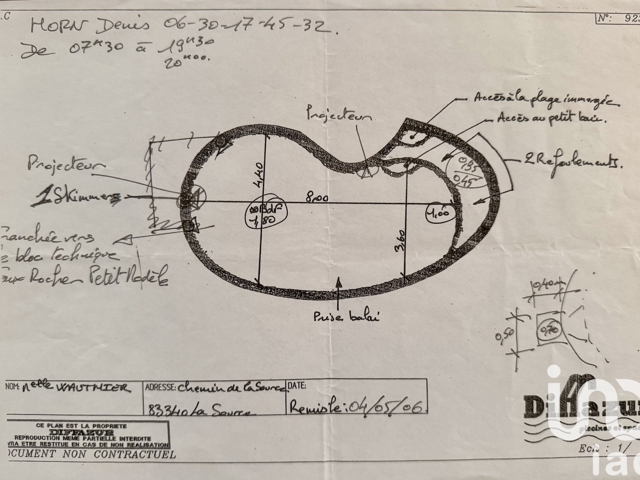 .C
N°: 923
HORN Denis 06-30-17-45-32.
De 07H30 à 19H30
20H00.
Projecteur
Accès à la plage immergée
Accès au petit bain.
2 Refoulements.
0,35
0,45
Projecteur
1 Skimmers
4,40
8,00
1,80
1,00
3,60
Tranchée vers
bloc technique
Rocher Petit Modèle
Prise balai
0,40
0,50
0,70
NOM: Melle WAUTHIER
ADRESSE: Chemin de la Source
83340 La Source
DATE:
Remis le: 04/05/06
CE PLAN EST LA PROPRIETE
DIFFAZUR
REPRODUCTION MEME PARTIELLE INTERDITE
ETRE RESTITUE EN CAS DE NON REALISATION
DOCUMENT NON CONTRACTUEL
Diffazur
Ech : 1/
iad